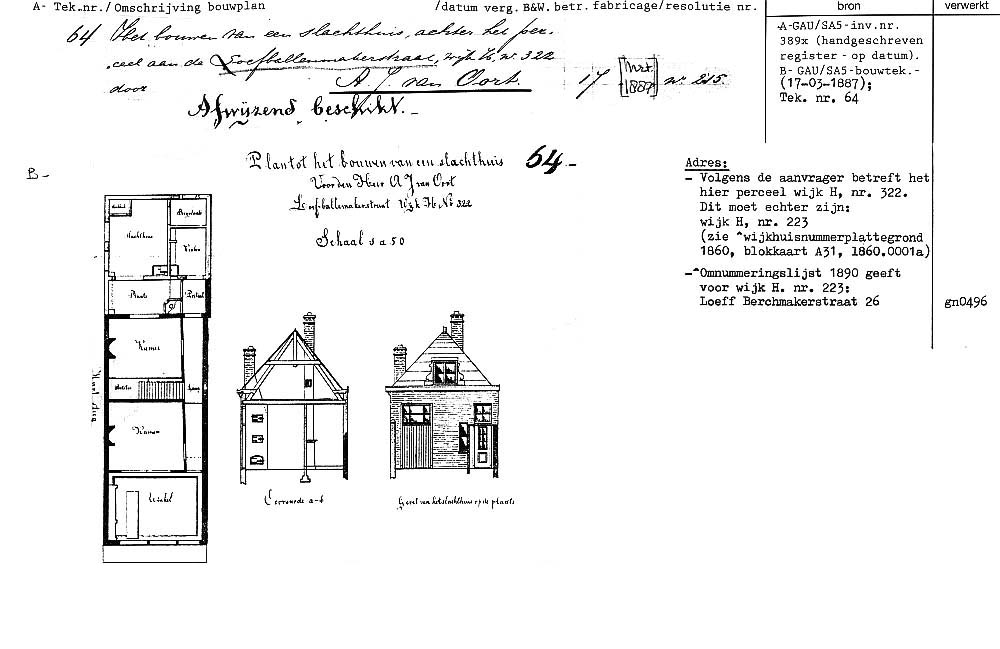 A- Tek.nr./Omschrijving bouwplan /datum verg. B&W. betr. fabricage/resolutie nr. bron verwerkt
64 Het bouwen van een slachthuis, achter het per-
ceel aan de Loefballenmakerstraat, wijk H, nr. 322
door A. J. van Oort 17 [Mrt. 1887] nr. 215
Afwijzend beschikt.-
A-GAU/SA5-inv.nr.
389x (handgeschreven
register - op datum).
B- GAU/SA5-bouwtek.-
(17-03-1887);
Tek. nr. 64
B-
Plan tot het bouwen van een slachthuis 64.-
Voor den Heer A J van Oort
Loefballemakerstraat Wijk H No 322
Schaal 1 a 50
Slachthuis
Bergplaats
Plaats
Portaal
Kamer
Gang
Kamer
Winkel
Doorsnede a-b
Gevel van het slachthuis op de plaats
Adres:
- Volgens de aanvrager betreft het
hier perceel wijk H, nr. 322.
Dit moet echter zijn:
wijk H, nr. 223
(zie ^wijkhuisnummerplattegrond
1860, blokkaart A31, 1860.0001a)
-^Omnummeringslijst 1890 geeft
voor wijk H. nr. 223:
Loeff Berchmakerstraat 26 gn0496